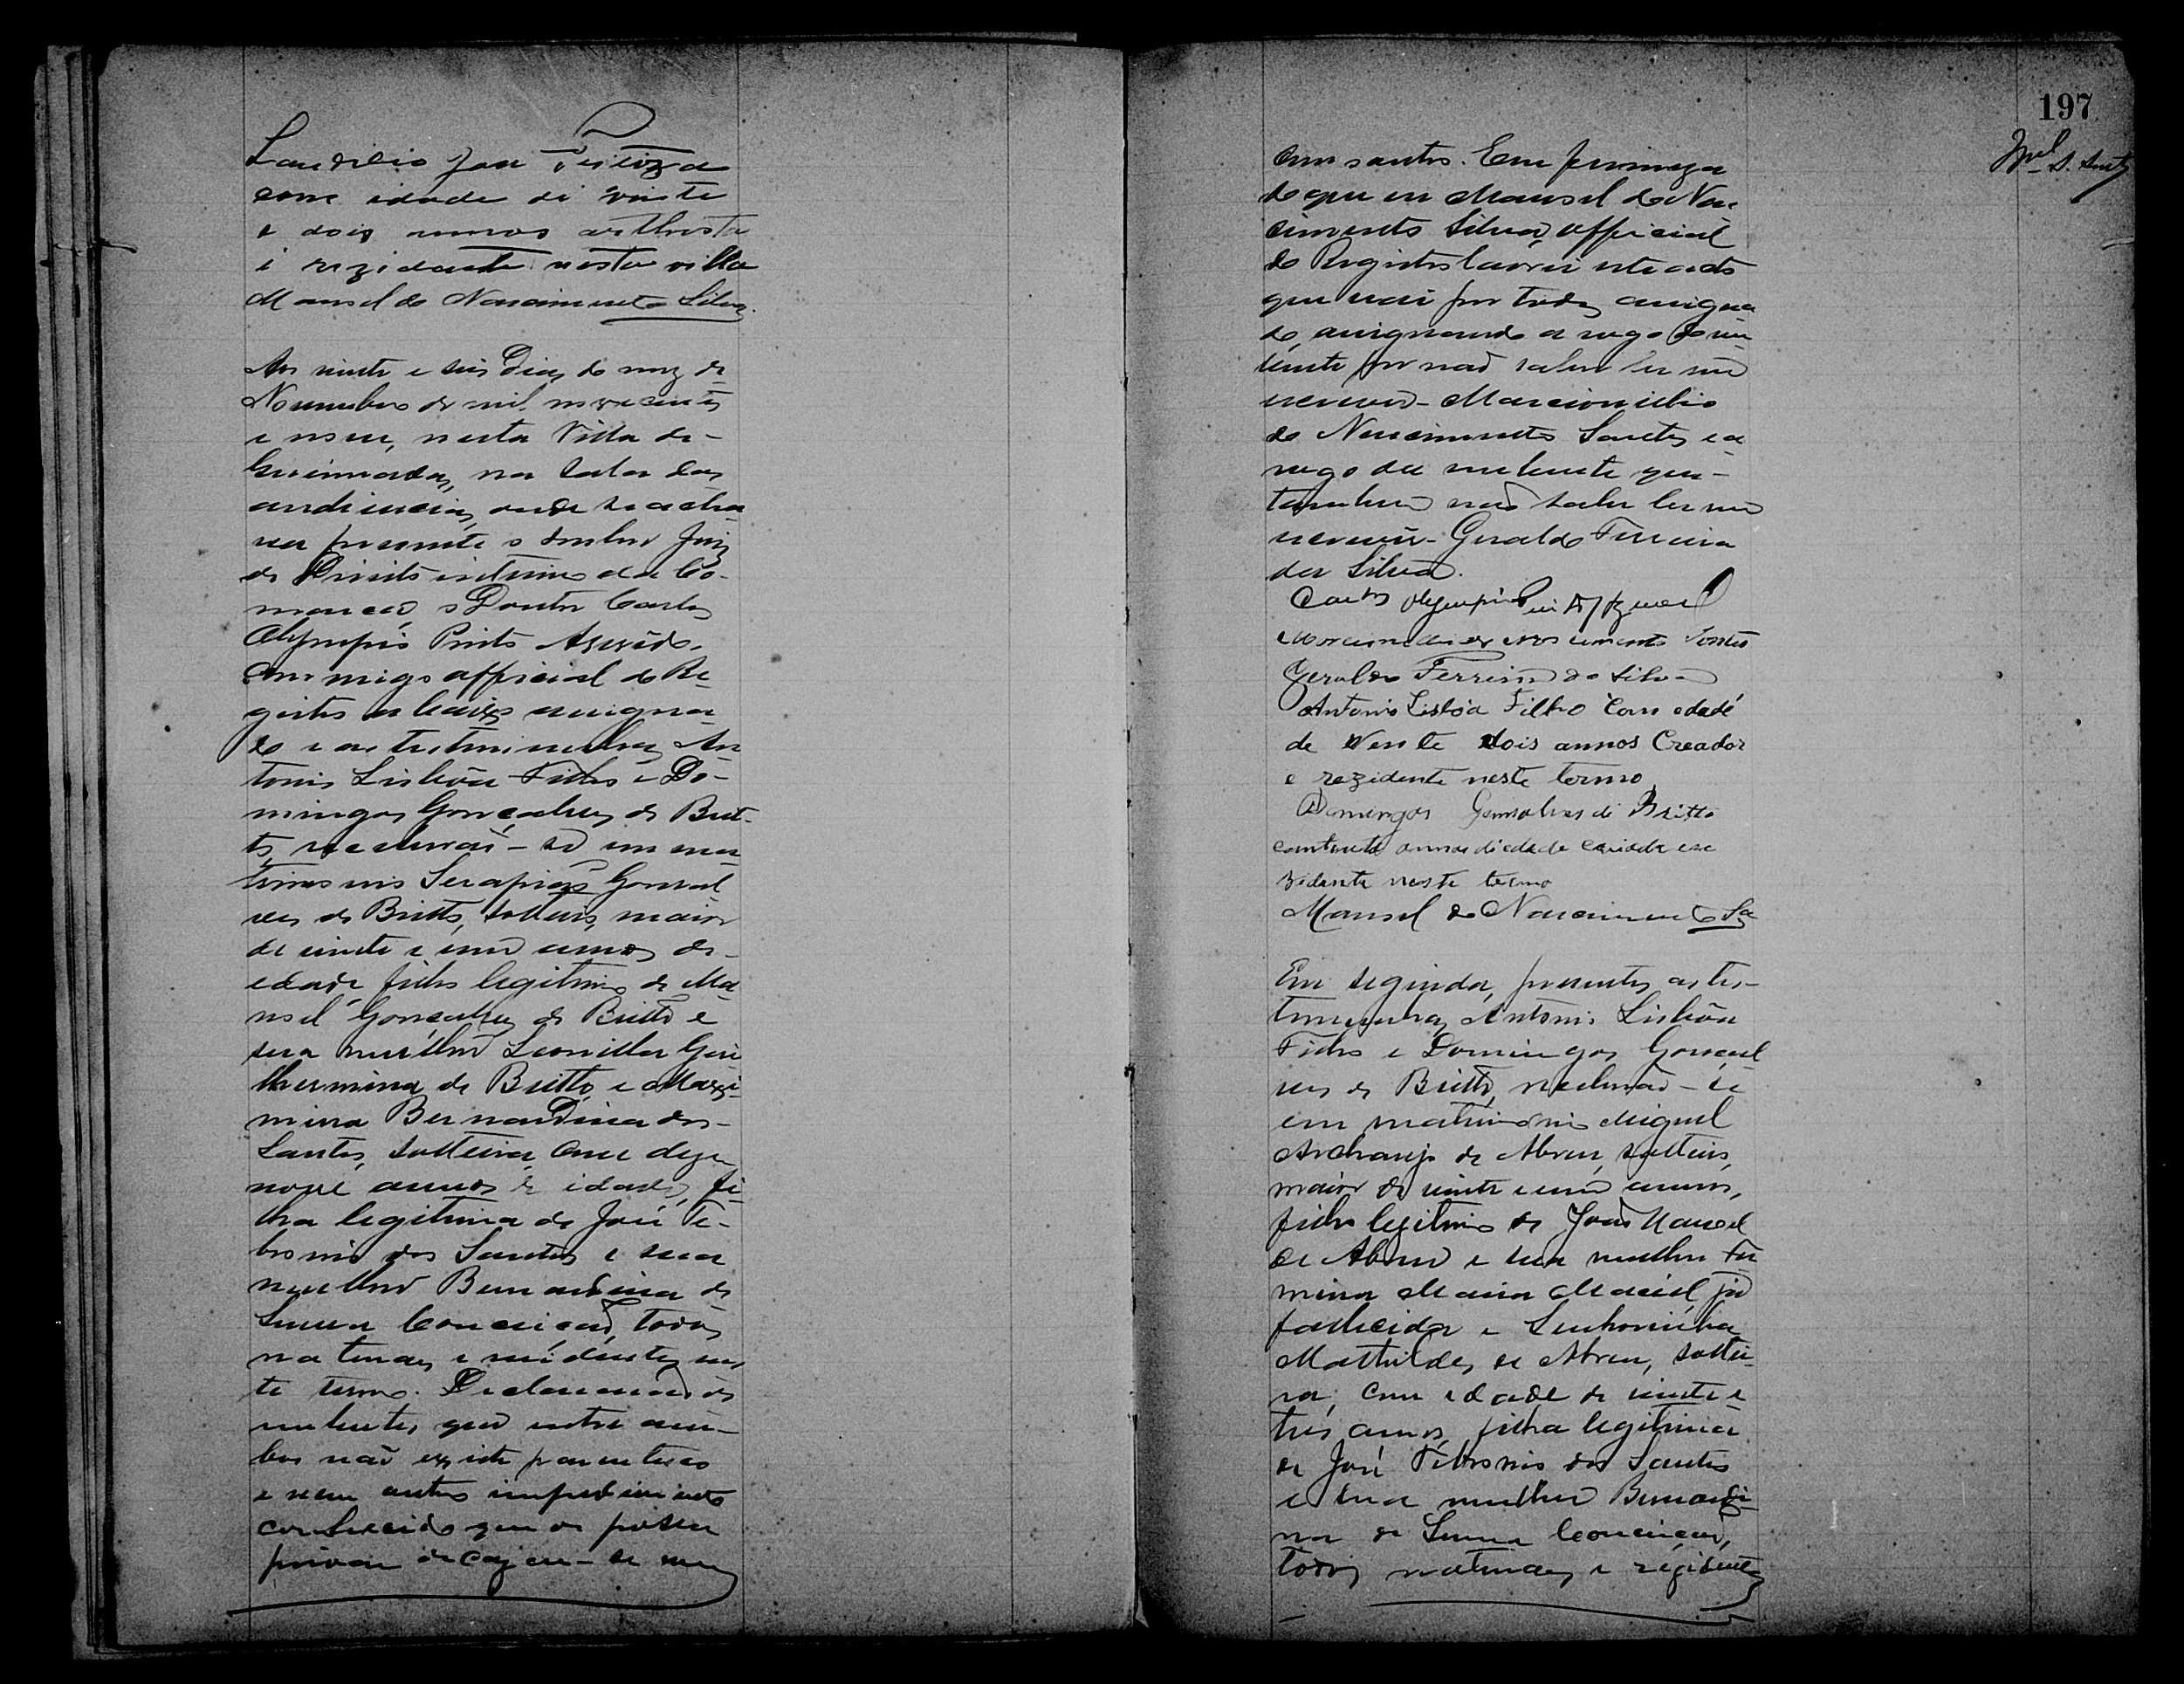 Laudilio José Feitoza
com idade di vinte
e dois annos arthista
i rezidente nesta villa
Manoel do Nascimento Silva.
Aos vinte e seis Dias do mez de
Novembro de mil novecentos
e nove, nesta Villa de
Queimadas, na sala das
audiencias, onde se acha-
va presente o doutor Juiz
de Direito interino da Co-
marca, o Doutor Carlos
Olympio Pinto Azevêdo,
commigo official do Re-
gistro abaixo assigna-
do e as testimunhas An-
tonio Lisbôa Filho e Do-
mingos Gonçalves de Brit-
to, receberão-se em ma-
trimonio Serapião Gonsal-
ves de Britto, solteiro, maior
de vinte e um annos de
edade, filho legitimo de Ma-
noel Gonsalves de Britto e
sua mulher Leonilla Gui-
lhermina de Britto, e Maxi-
mina Bernardina dos
Santos, solteira, com deze-
nove annos de idade, fi-
lha legitima de José Pe-
tronio dos Santos e sua
mulher Bernardina de
Senna Conceição, todos
naturaes e residentes nes-
te termo. Declararam os
nubentes que entre am-
bos não existe parentesco
e nem outro impedimento
conhecido que os possa
privar de cazar-se um
197
com santos. Em firmeza
do que eu Manoel do Nas-
cimento Silva, official
do Registro lavrei este acto
que vai por todos assigna-
do, assignando a rogo do nu-
bente por não saber ler nem
escrever - Marcionilio
do Nascimento Santos e a
rogo da nubente que
tambem não sabe ler nem
escrever - Geraldo Ferreira
da Silva.
Carlos Olympio Pinto Azevedo
Nascimento Santos
Geraldo Ferreira da Silva
Antonio Lisbôa Filho Com edadé
de Vente dois annos Creador
e rezidente neste termo
Domingos Gonsalves di Britto
com trinta annos di edade e re
zidente neste termo
Manoel do Nascimento Sa
Em seguida, presentes as tes-
temunhas Antonio Lisbôa
Filho e Domingos Gonsal-
ves de Britto, receberão-se
em matrimonio Miguel
Archanjo de Abreu, solteiro,
maior de vinte e um annos,
filho legitimo de João Manoel
de Abreu e sua mulher Fir
mina Maria Maciel já
fallecida e Senhorinha
Mathildes de Abreu, soltei-
ra, com edade de vinte e
tres annos, filha legitima
de José Petronio dos Santos
e sua mulher Bernardi-
na de Senna Conceição,
todos naturaes e rezidentes